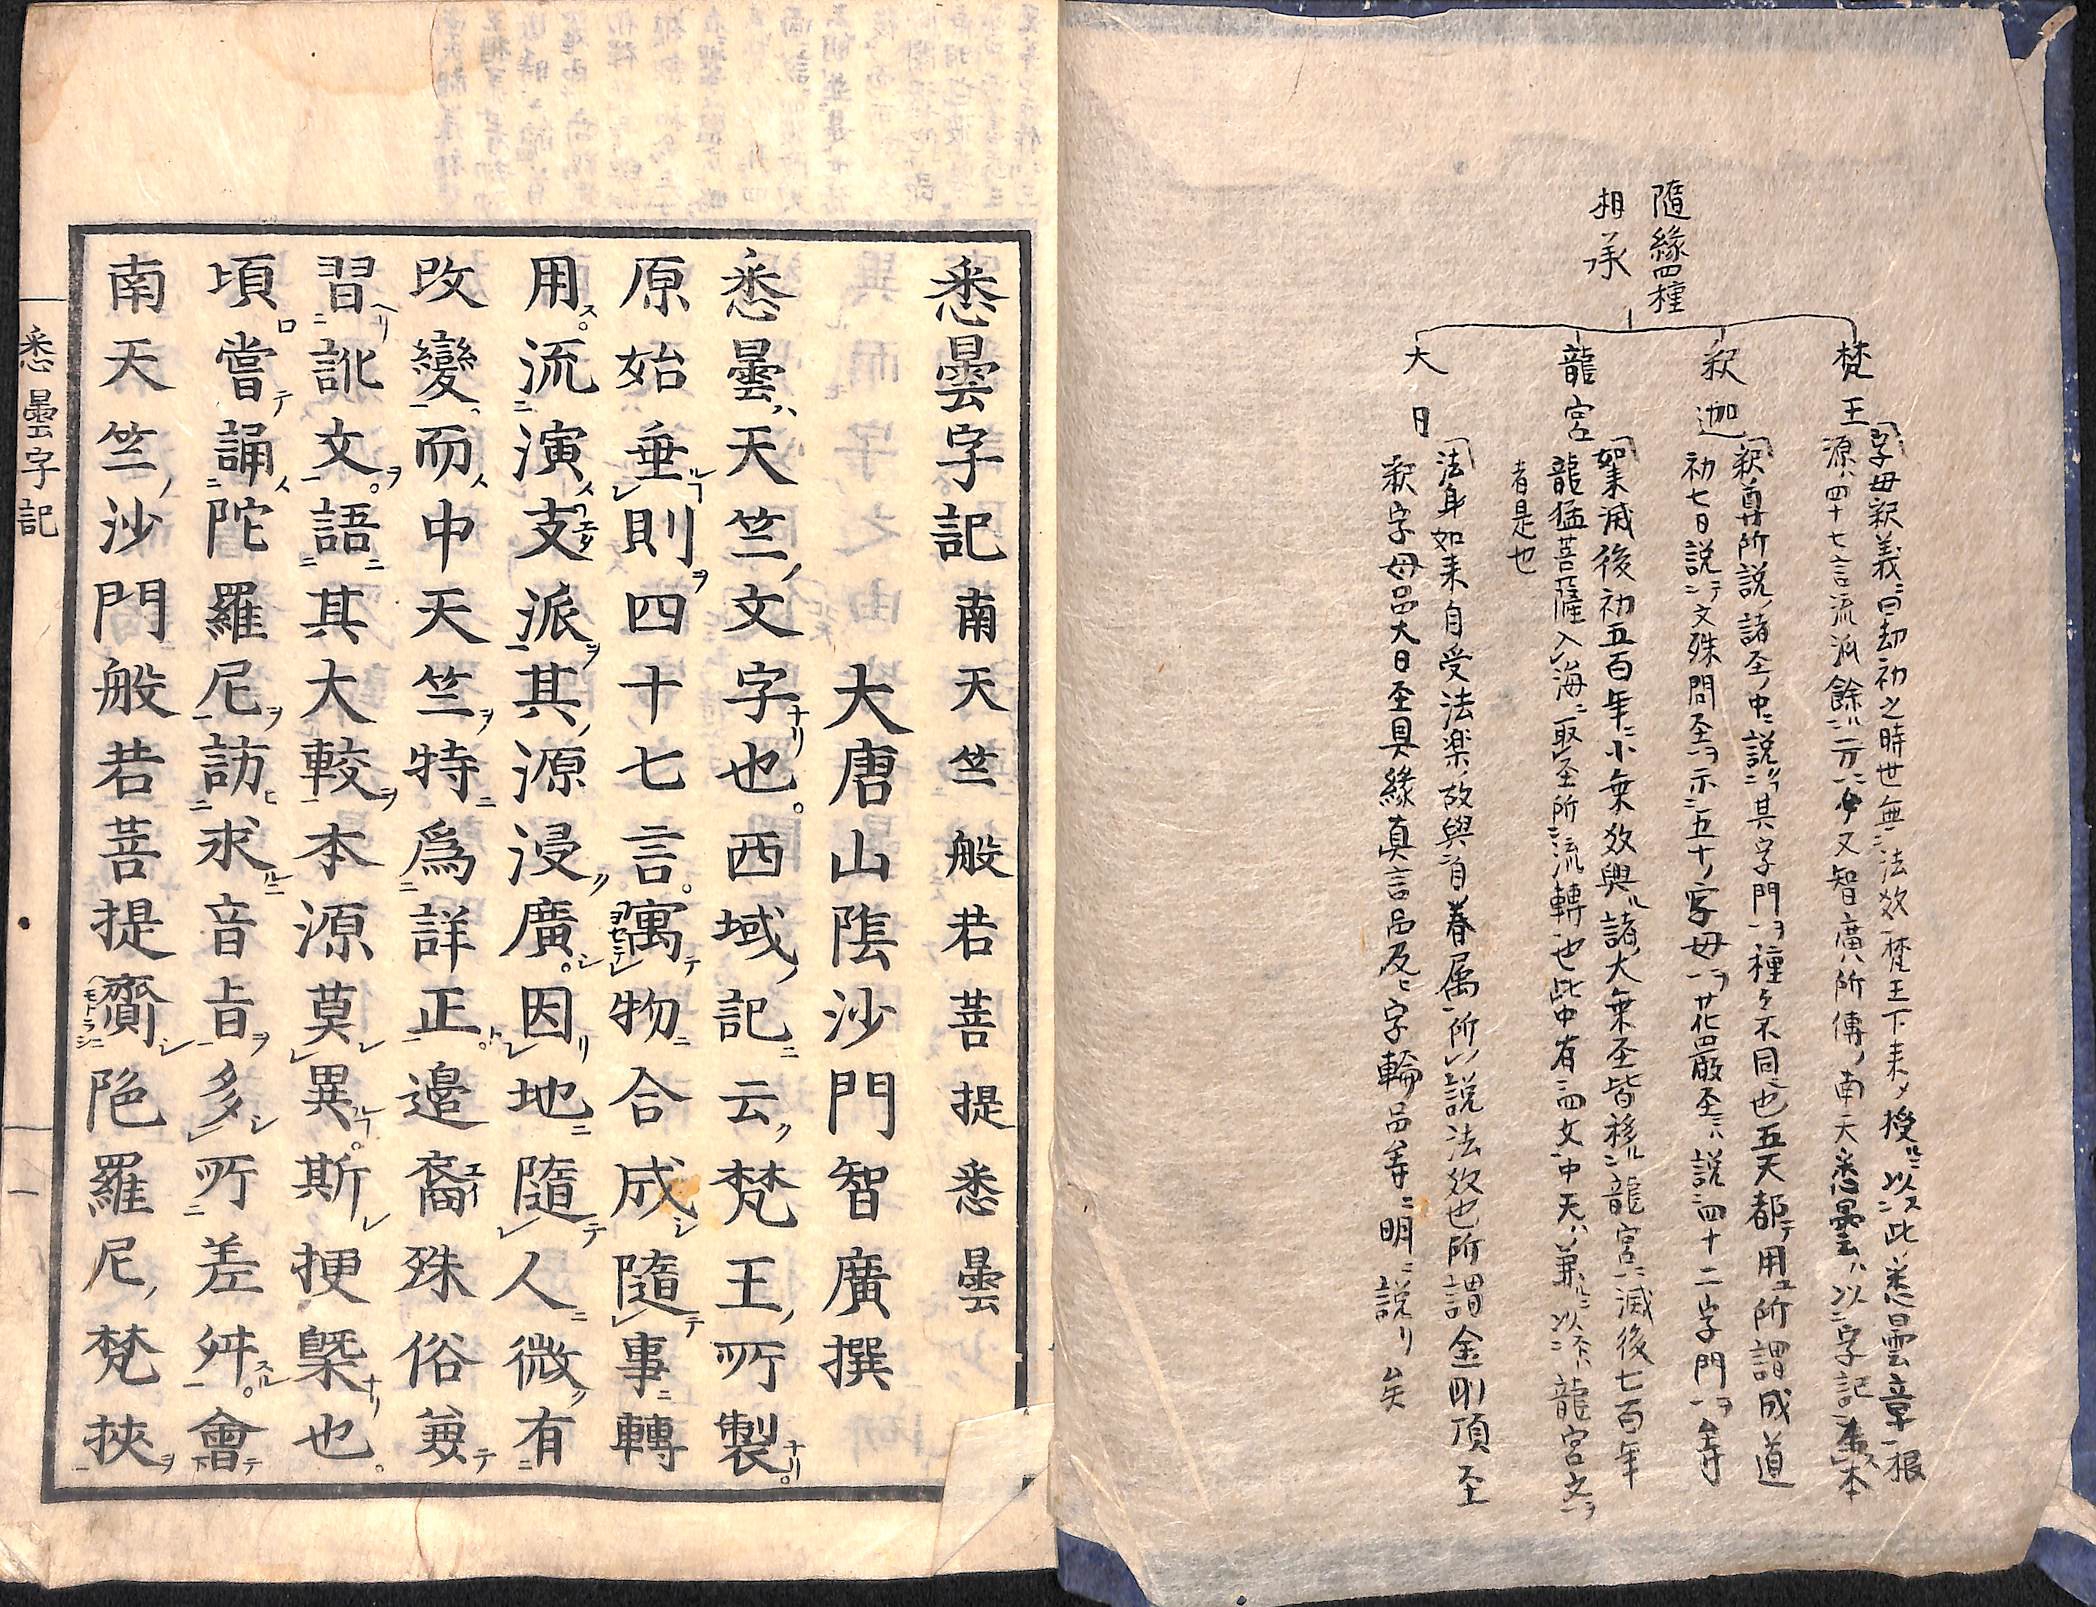 隨緣四種
相承
梵王
字母釈義曰劫初之時世無法教梵王下来授以此悉曇章根
源四十七言流派餘又智廣所傳南天悉曇以字記為本
釈迦
釈尊所説諸圣中説其字門種々不同也五天都用所謂成道
初七日説文殊問圣示五十字母花嚴圣説四十二字門等
龍宮
如来滅後初五百年小乗教興諸大乗圣皆移龍宮滅後七百年
龍猛菩薩入海取圣所流轉也此中有四文中天兼以龍宮之文
者是也
大日
法身如来自受法楽故與自眷属所説法教也所謂金剛頂圣
釈字母品大日圣具緣真言品及字輪品等明説リ矣
悉曇字記 南天竺般若菩提悉曇
大唐山陰沙門智廣撰
悉曇天竺文字也西域記云梵王所製
原始垂則四十七言寓物合成隨事轉
用流演支派其源浸廣因地隨人微有
改變而中天竺特爲詳正邊裔殊俗兼
習訛文語其大較本源莫異斯梗槩也
頃嘗誦陀羅尼訪求音旨多所差舛會
南天竺沙門般若菩提齎陁羅尼梵挾
悉曇字記
一